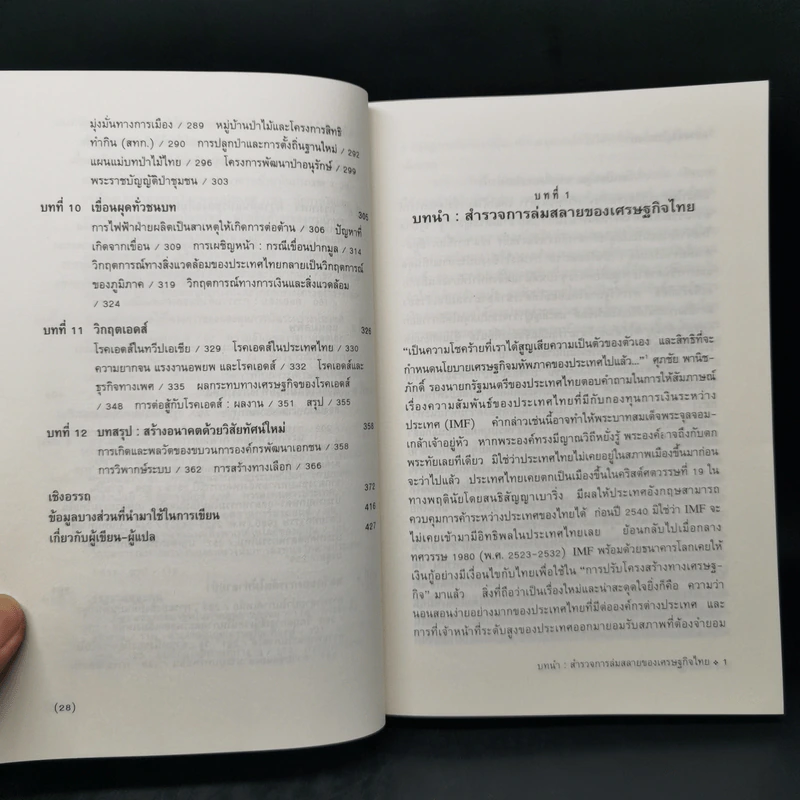 มุ่งมั่นทางการเมือง / 289 หมู่บ้านป่าไม้และโครงการสิทธิ
ทำกิน (สทก.) / 290 การปลูกป่าและการตั้งถิ่นฐานใหม่ / 292
แผนแม่บทป่าไม้ไทย / 296 โครงการพัฒนาป่าอนุรักษ์ / 299
พระราชบัญญัติป่าชุมชน / 303
บทที่ 10 เขื่อนผุดทั่วชนบท 305
การไฟฟ้าฝ่ายผลิตเป็นสาเหตุให้เกิดการต่อต้าน / 306 ปัญหาที่
เกิดจากเขื่อน / 309 การเผชิญหน้า : กรณีเขื่อนปากมูล / 314
วิกฤตการณ์ทางสิ่งแวดล้อมของประเทศไทยกลายเป็นวิกฤตการณ์
ของภูมิภาค / 319 วิกฤตการณ์ทางการเงินและสิ่งแวดล้อม
/ 324
บทที่ 11 วิกฤตเอดส์ 326
โรคเอดส์ในทวีปเอเชีย / 329 โรคเอดส์ในประเทศไทย / 330
ความยากจน แรงงานอพยพ และโรคเอดส์ / 332 โรคเอดส์และ
ธุรกิจทางเพศ / 335 ผลกระทบทางเศรษฐกิจของโรคเอดส์
/ 348 การต่อสู้กับโรคเอดส์ : ผลงาน / 351 สรุป / 355
บทที่ 12 บทสรุป : สร้างอนาคตด้วยวิสัยทัศน์ใหม่ 358
การเกิดและพลวัตของขบวนการองค์กรพัฒนาเอกชน / 358
การวิพากษ์ระบบ / 362 การสร้างทางเลือก / 366
เชิงอรรถ 372
ข้อมูลบางส่วนที่นำมาใช้ในการเขียน 416
เกี่ยวกับผู้เขียน-ผู้แปล 427
(28)
บทที่ 1
บทนำ : สำรวจการล่มสลายของเศรษฐกิจไทย
"เป็นความโชคร้ายที่เราได้สูญเสียความเป็นตัวของตัวเอง และสิทธิที่จะ
กำหนดนโยบายเศรษฐกิจมหัพภาคของประเทศไปแล้ว..."¹ ศุภชัย พานิช-
ภักดิ์ รองนายกรัฐมนตรีของประเทศไทยตอบคำถามในการให้สัมภาษณ์
เรื่องความสัมพันธ์ของประเทศไทยที่มีกับกองทุนการเงินระหว่าง
ประเทศ (IMF) คำกล่าวเช่นนี้อาจทำให้พระบาทสมเด็จพระจุลจอม-
เกล้าเจ้าอยู่หัว หากพระองค์ทรงมีญาณวิถีหยั่งรู้ พระองค์อาจถึงกับตก
พระทัยเลยทีเดียว มิใช่ว่าประเทศไทยไม่เคยอยู่ในสภาพเมืองขึ้นมาก่อน
จะว่าไปแล้ว ประเทศไทยเคยตกเป็นเมืองขึ้นในคริสต์ศตวรรษที่ 19 ใน
ทางพฤตินัยโดยสนธิสัญญาเบาริ่ง มีผลให้ประเทศอังกฤษสามารถ
ควบคุมการค้าระหว่างประเทศของไทยได้ ก่อนปี 2540 มิใช่ว่า IMF จะ
ไม่เคยเข้ามามีอิทธิพลในประเทศไทยเลย ย้อนกลับไปเมื่อกลาง
ทศวรรษ 1980 (พ.ศ. 2523-2532) IMF พร้อมด้วยธนาคารโลกเคยให้
เงินกู้อย่างมีเงื่อนไขกับไทยเพื่อใช้ใน "การปรับโครงสร้างทางเศรษฐ-
กิจ" มาแล้ว สิ่งที่ถือว่าเป็นเรื่องใหม่และน่าสะดุดใจยิ่งก็คือ ความว่า
นอนสอนง่ายอย่างมากของประเทศไทยที่มีต่อองค์กรต่างประเทศ และ
การที่เจ้าหน้าที่ระดับสูงของประเทศออกมายอมรับสภาพที่ต้องจำยอม
บทนำ : สำรวจการล่มสลายของเศรษฐกิจไทย ❖ 1